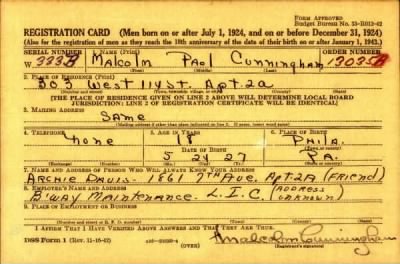 FORM APPROVED
Budget Bureau No. 33-R012-42
REGISTRATION CARD (Men born on or after July 1, 1924, and on or before December 31, 1924)
(Also for the registration of men as they reach the 18th anniversary of the date of their birth on or after January 1, 1943.)
SERIAL NUMBER 1. NAME (Print) ORDER NUMBER
W 333B Malcolm Paol Cunningham 13035A
(First) (Middle) (Last)
2. PLACE OF RESIDENCE (Print)
303 West 114 St. Apt. 2a
[THE PLACE OF RESIDENCE GIVEN ON LINE 2 ABOVE WILL DETERMINE LOCAL BOARD
JURISDICTION; LINE 2 OF REGISTRATION CERTIFICATE WILL BE IDENTICAL]
3. MAILING ADDRESS
Same
[Mailing address if other than place indicated on line 2. If same, insert word same]
4. TELEPHONE 5. AGE IN YEARS 6. PLACE OF BIRTH
None 18 Phila.
DATE OF BIRTH
5 24 27 PA.
7. NAME AND ADDRESS OF PERSON WHO WILL ALWAYS KNOW YOUR ADDRESS
Archie Davis - 1861 7th Ave. Apt 2A (Friend)
8. EMPLOYER'S NAME AND ADDRESS
B'way Maintenance L.I.C. (Address unknown)
9. PLACE OF EMPLOYMENT OR BUSINESS
I AFFIRM THAT I HAVE VERIFIED ABOVE ANSWERS AND THAT THEY ARE TRUE.
DSS Form 1 (Rev. 11-16-42) (OVER) Malcolm Cunningham
(Registrant's signature)